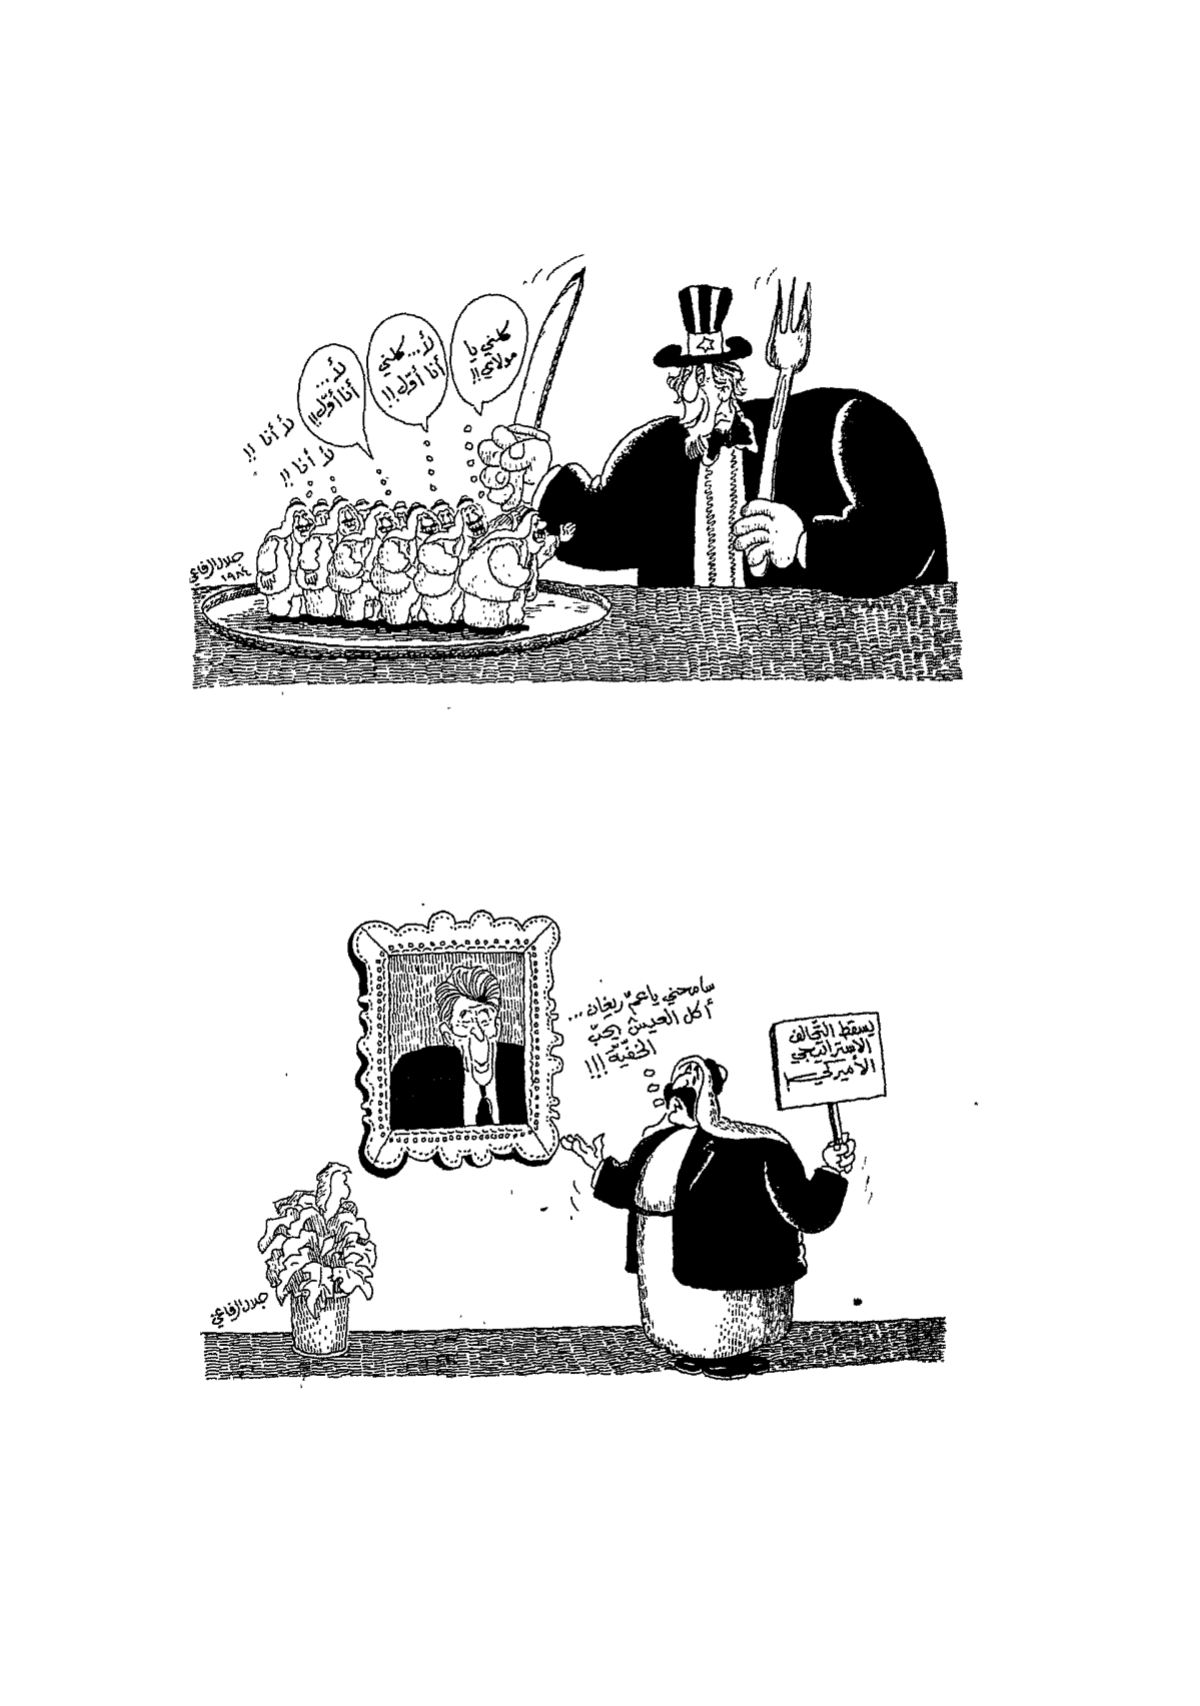 كلني يا
مولاي!!
لأ... كلني
أنا أوّل!!
لأ...
أنا أوّل!!
لأ أنا !!
لأ أنا !!
جلال الرفاعي
١٩٨٤
سامحني يا عمّ ريغان...
أكل العيش يحبّ
الخفيّة !!!
يسقط التحالف
الاستراتيجي
الأميركي
جلال الرفاعي